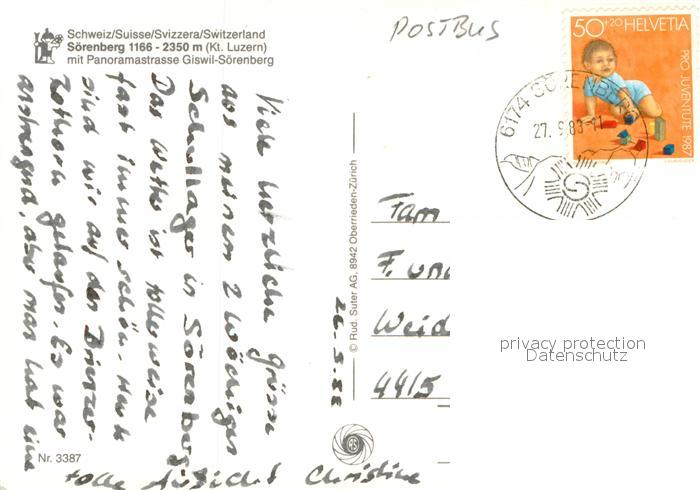 Schweiz/Suisse/Svizzera/Switzerland
Sörenberg 1166 - 2350 m (Kt. Luzern)
mit Panoramastrasse Giswil-Sörenberg
POSTBUS
50+20 HELVETIA
PRO JUVENTUTE 1987
6174 SÖRENBERG
27.9.88-11
Viele herzliche Grüsse
aus meinem 2 wöchigen
Schullager in Sörenberg
Das Wetter ist tollerweise
fast immer schön. Heute
sind wir auf das Brienzer-
Rothorn gelaufen. Es war
anstrengend, aber man hat eine
tolle Aussicht Christine
26.9.88
© Rud. Suter AG, 8942 Oberrieden-Zürich
Fam
F. und
Weid
4415
privacy protection
Datenschutz
Nr. 3387